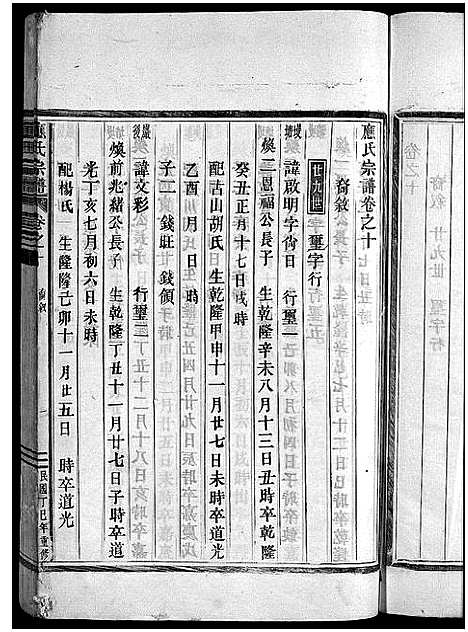 應氏宗譜卷之十
裔敘
廿九世 璽字行
諱啟明字尙日 行璽一
煥三恩福公長子 生乾隆辛未八月十三日丑時卒乾隆
癸丑正月十七日戌時
配古山胡氏 生乾隆甲申十一月廿七日未時卒道光
乙酉 月 日 時
子二 錢旺 錢領
諱文彩 行璽二
煥前兆緒公長子 生乾隆丁丑十一月廿七日子時卒道
光丁亥七月初六日未時
配楊氏 生隆隆己卯十一月廿五日 時卒道光
應氏宗譜 卷之十 裔敘 民國丁巳年重修